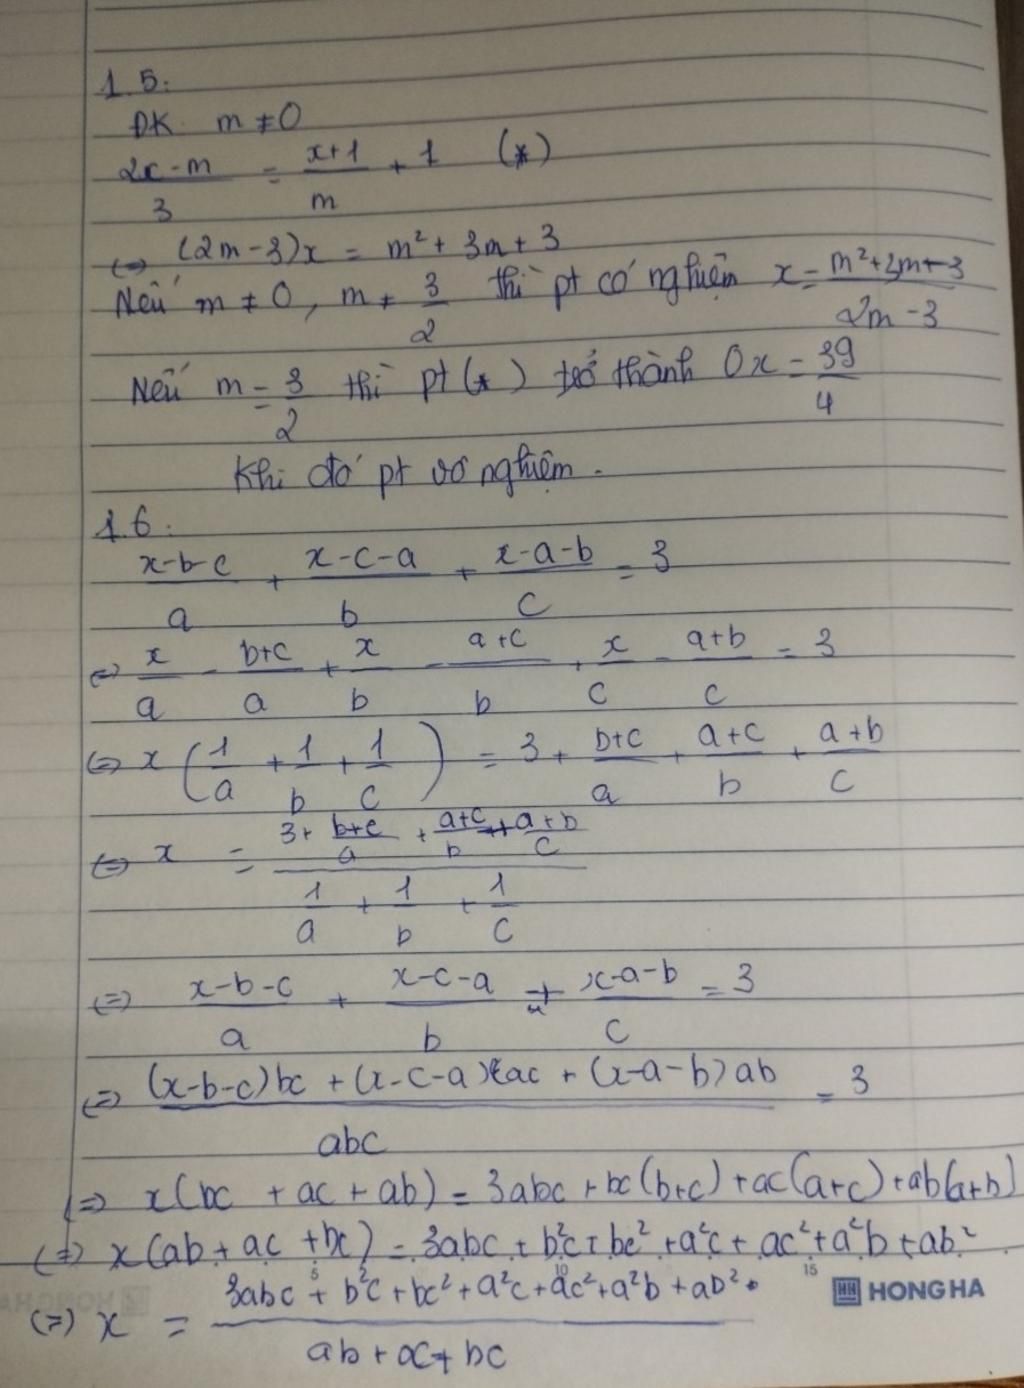 1.5:
ĐK. m ≠ 0
(2x - m)/3 = (x+1)/m + 1 (*)
<=> (2m - 3)x = m² + 3m + 3
Nếu m ≠ 0, m ≠ 3/2 thì pt có nghiệm x = (m² + 3m + 3)/(2m - 3)
Nếu m = 3/2 thì pt (*) trở thành 0x = 39/4
Khi đó pt vô nghiệm.
1.6:
(x-b-c)/a + (x-c-a)/b + (x-a-b)/c = 3
<=> x/a - (b+c)/a + x/b - (a+c)/b + x/c - (a+b)/c = 3
<=> x (1/a + 1/b + 1/c) = 3 + (b+c)/a + (a+c)/b + (a+b)/c
<=> x = (3 + (b+c)/a + (a+c)/b + (a+b)/c)/(1/a + 1/b + 1/c)
<=> (x-b-c)/a + (x-c-a)/b + (x-a-b)/c = 3
<=> ((x-b-c)bc + (x-c-a)ac + (x-a-b)ab)/abc = 3
<=> x(bc + ac + ab) = 3abc + bc(b+c) + ac(a+c) + ab(a+b)
<=> x(ab + ac + bc) = 3abc + b²c + bc² + a²c + ac² + a²b + ab²
<=> x = (3abc + b²c + bc² + a²c + ac² + a²b + ab²)/(ab + ac + bc)
5 10 15
HH HONG HA